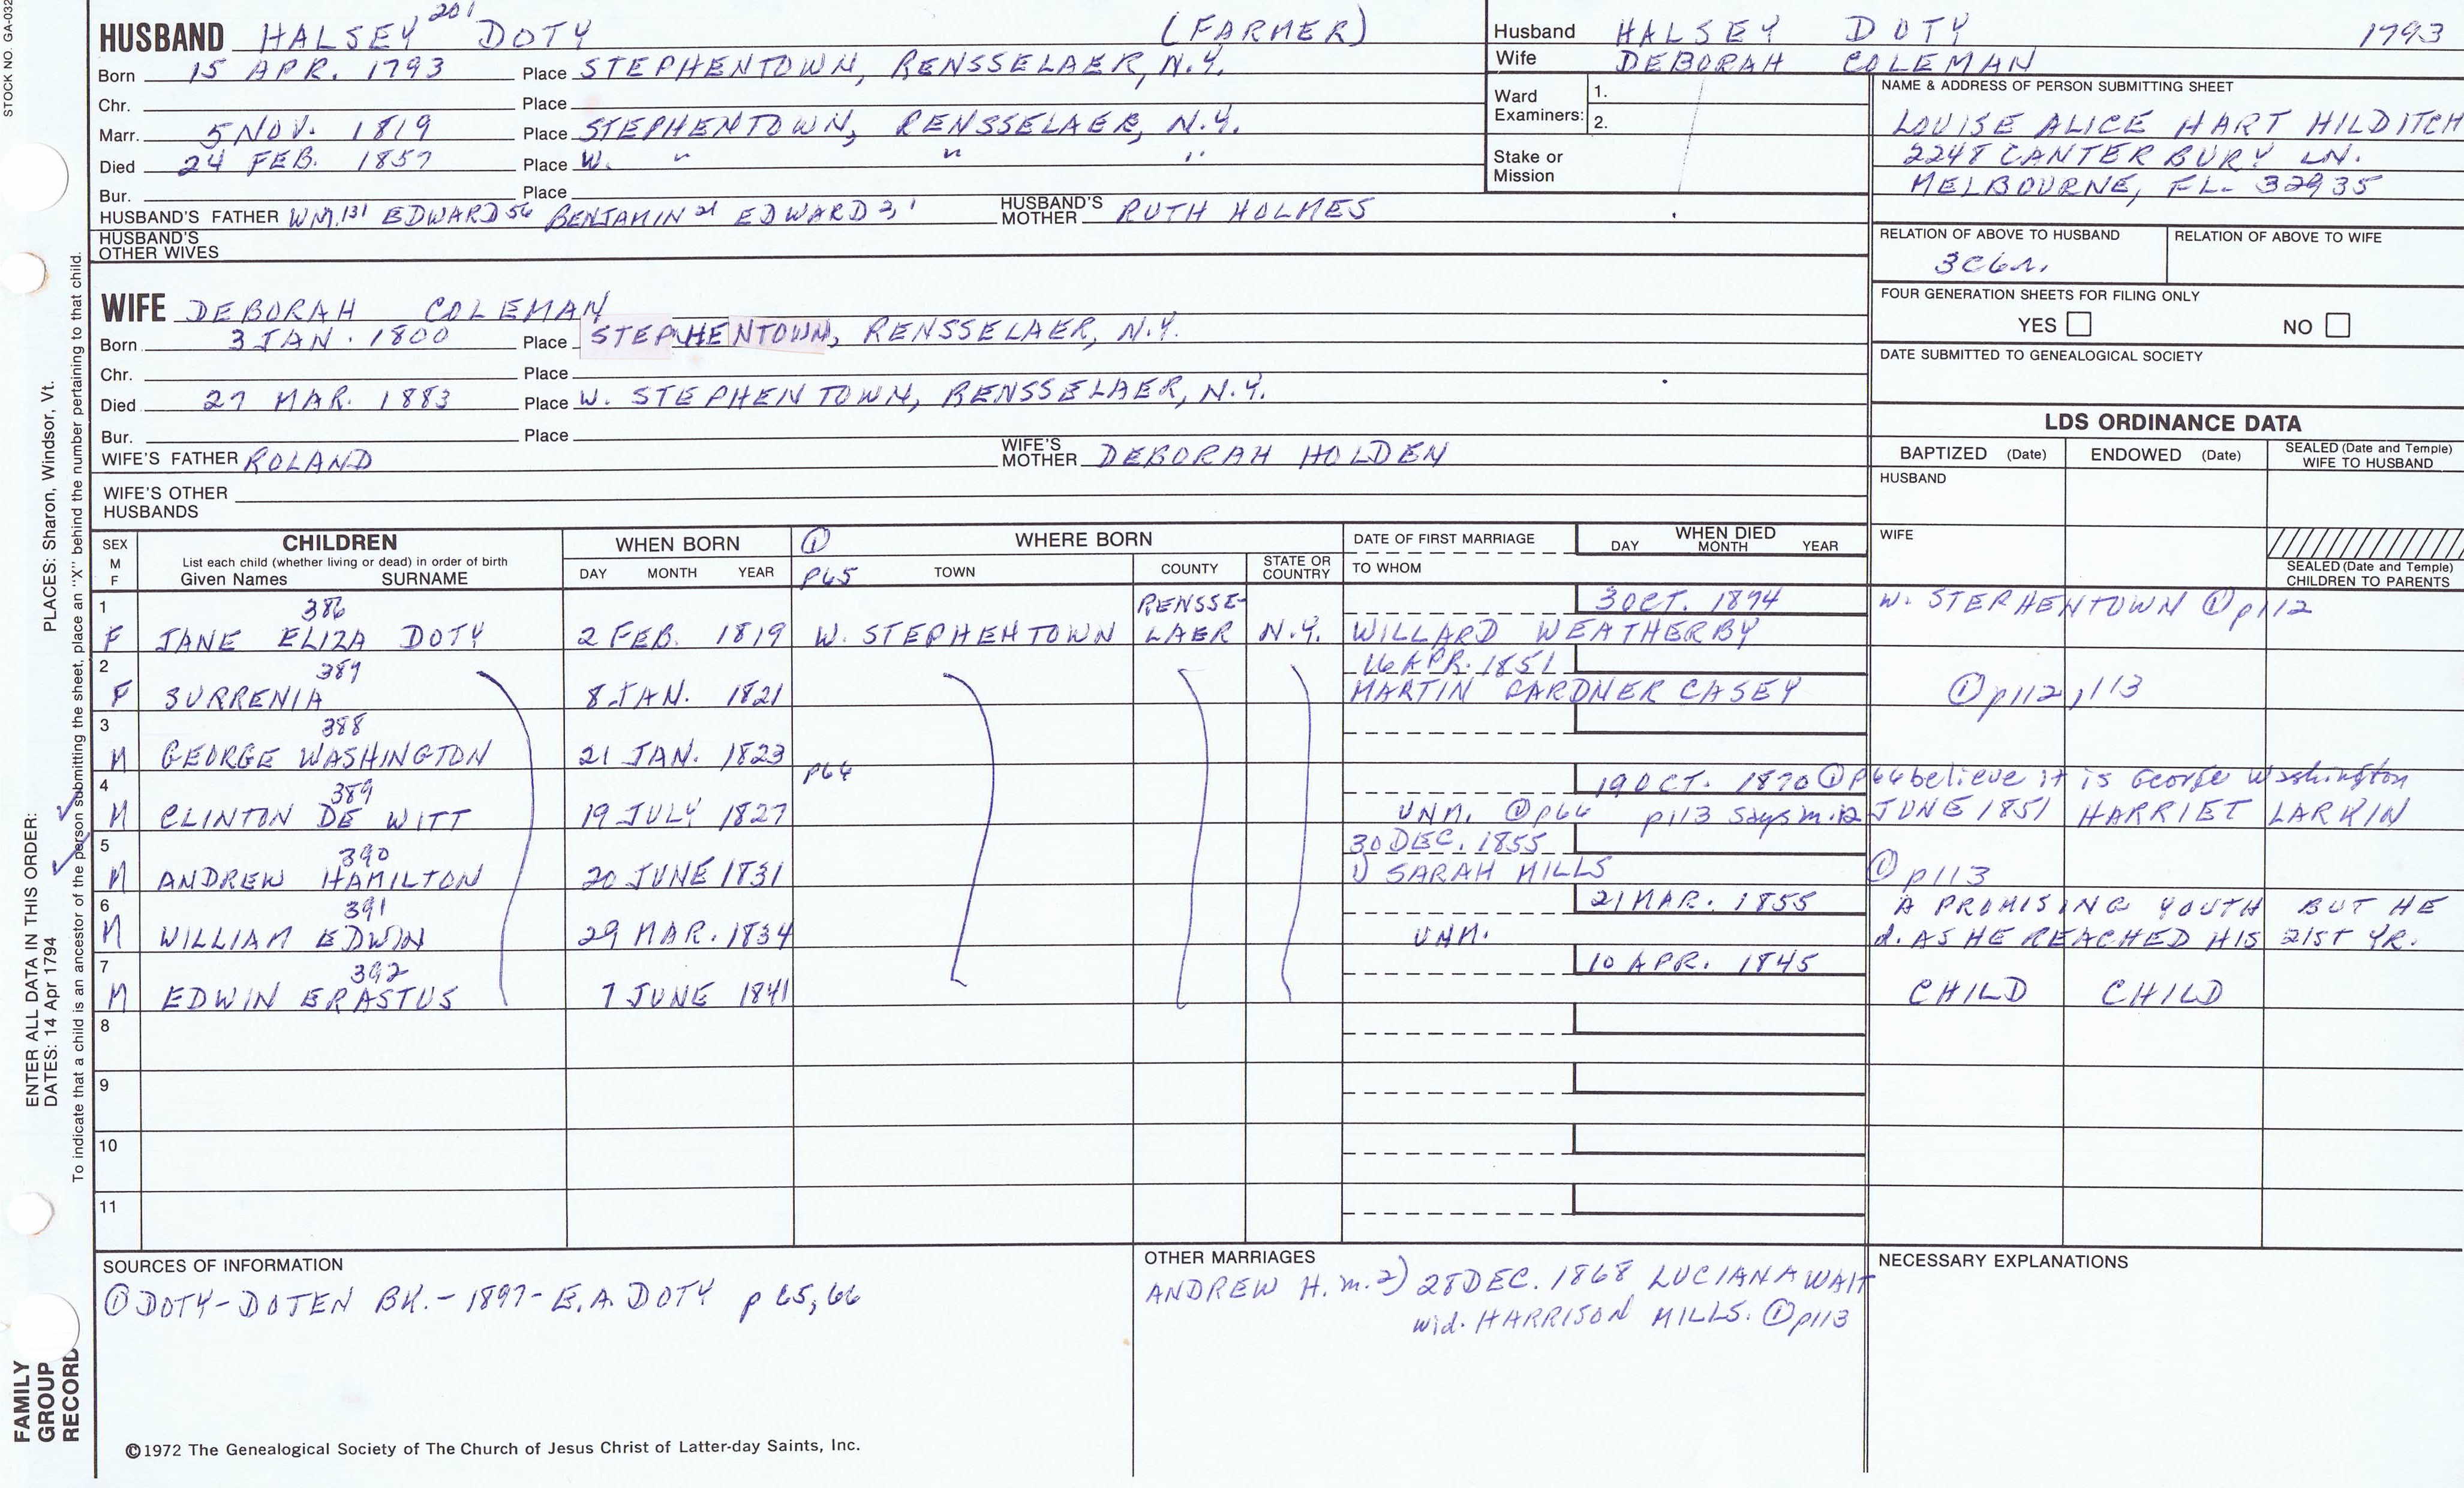 STOCK NO. GA-032
HUSBAND HALSEY 201 DOTY (FARMER)
Born 15 APR. 1793 Place STEPHENTOWN, RENSSELAER, N.Y.
Chr. Place
Marr. 5 NOV. 1819 Place STEPHENTOWN, RENSSELAER, N.Y.
Died 24 FEB. 1857 Place W. " " "
Bur. Place
HUSBAND'S FATHER WM.131 EDWARD 56 BENJAMIN 21 EDWARD 2, 1 HUSBAND'S MOTHER RUTH HOLMES
HUSBAND'S OTHER WIVES
Husband HALSEY DOTY 1793
Wife DEBORAH COLEMAN
Ward Examiners: 1.
2.
Stake or Mission
NAME & ADDRESS OF PERSON SUBMITTING SHEET
LOUISE ALICE HART HILDITCH
2248 CANTERBURY LN.
MELBOURNE, FL. 32935
RELATION OF ABOVE TO HUSBAND RELATION OF ABOVE TO WIFE
3C6r.
FOUR GENERATION SHEETS FOR FILING ONLY
YES NO
DATE SUBMITTED TO GENEALOGICAL SOCIETY
WIFE DEBORAH COLEMAN
Born 3 JAN. 1800 Place STEPHENTOWN, RENSSELAER, N.Y.
Chr. Place
Died 27 MAR. 1883 Place W. STEPHENTOWN, RENSSELAER, N.Y.
Bur. Place
WIFE'S FATHER ROLAND WIFE'S MOTHER DEBORAH HOLDEN
WIFE'S OTHER HUSBANDS
LDS ORDINANCE DATA
BAPTIZED (Date) ENDOWED (Date) SEALED (Date and Temple) WIFE TO HUSBAND
HUSBAND
WIFE
SEALED (Date and Temple) CHILDREN TO PARENTS
SEX M F CHILDREN List each child (whether living or dead) in order of birth Given Names SURNAME
WHEN BORN DAY MONTH YEAR
① p65 WHERE BORN TOWN COUNTY STATE OR COUNTRY
DATE OF FIRST MARRIAGE TO WHOM
WHEN DIED DAY MONTH YEAR
1 386 RENSSE- 3 OCT. 1894 W. STEPHENTOWN ① p112
F JANE ELIZA DOTY 2 FEB. 1819 W. STEPHENTOWN LAER N.Y. WILLARD WEATHERBY
2 387 16 APR. 1851
F SURRENIA 8 JAN. 1821 MARTIN GARDNER CASEY ① p112, 113
3 388
M GEORGE WASHINGTON 21 JAN. 1823
4 389 p64 19 OCT. 1870 ① p66 believe it is George Washington
M CLINTON DE WITT 19 JULY 1827 UNM. ① p66 p113 says m. 12 JUNE 1851 HARRIET LARKIN
5 390 30 DEC. 1855
M ANDREW HAMILTON 20 JUNE 1831 1) SARAH MILLS ① p113
6 391 21 MAR. 1855 A PROMISING YOUTH BUT HE
M WILLIAM EDWIN 29 MAR. 1834 UNM. d. AS HE REACHED HIS 21ST YR.
7 392 10 APR. 1845
M EDWIN ERASTUS 7 JUNE 1841 CHILD CHILD
8
9
10
11
SOURCES OF INFORMATION
① DOTY-DOTEN BK.- 1897- E.A. DOTY p 65, 66
OTHER MARRIAGES
ANDREW H. m. 2) 28 DEC. 1868 LUCIANA WAIT
wid. HARRISON MILLS. ① p113
NECESSARY EXPLANATIONS
©1972 The Genealogical Society of The Church of Jesus Christ of Latter-day Saints, Inc.
FAMILY GROUP RECORD
ENTER ALL DATA IN THIS ORDER:
DATES: 14 Apr 1794 PLACES: Sharon, Windsor, Vt.
To indicate that a child is an ancestor of the person submitting the sheet, place an "X" behind the number pertaining to that child.